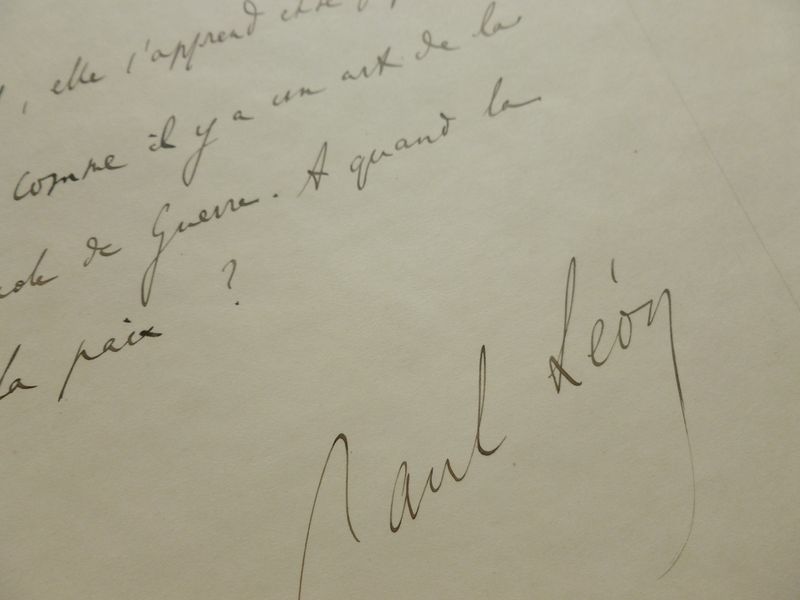 , elle s'apprend
comme il y a un art de la
de Guerre. A quand la
la paix ?
Paul Léon